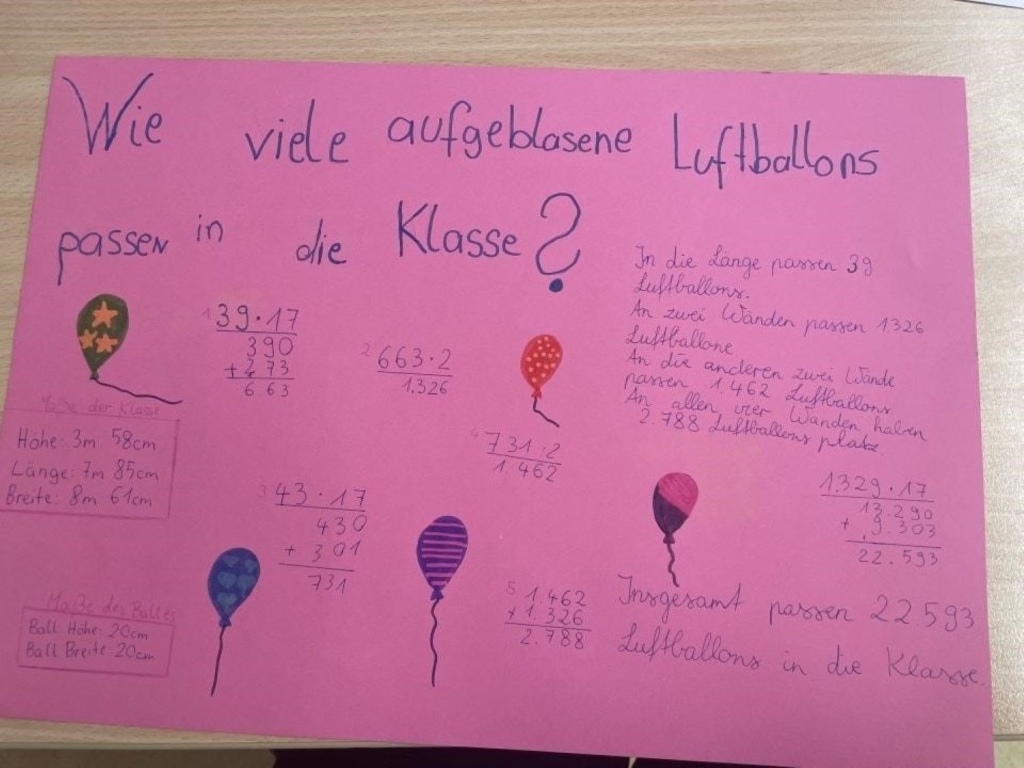 Wie viele aufgeblasene Luftballons
passen in die Klasse?
In die Länge passen 39
Luftballons.
An zwei Wänden passen 1326
Luftballone
An die anderen zwei Wände
passen 1.462 Luftballons.
An allen vier Wänden haben
2.788 Luftballons platz.
1 39·17
390
+ 273
663
2 663·2
1.326
Maße der Klasse
Höhe: 3m 58cm
Länge: 7m 85cm
Breite: 8m 61cm
3 43·17
430
+ 301
731
4 731·2
1.462
5 1.462
+ 1.326
2.788
1.329·17
13.290
+ 9.303
22.593
Maße des Balles
Ball Höhe: 20cm
Ball Breite: 20cm
Insgesamt passen 22.593
Luftballons in die Klasse.